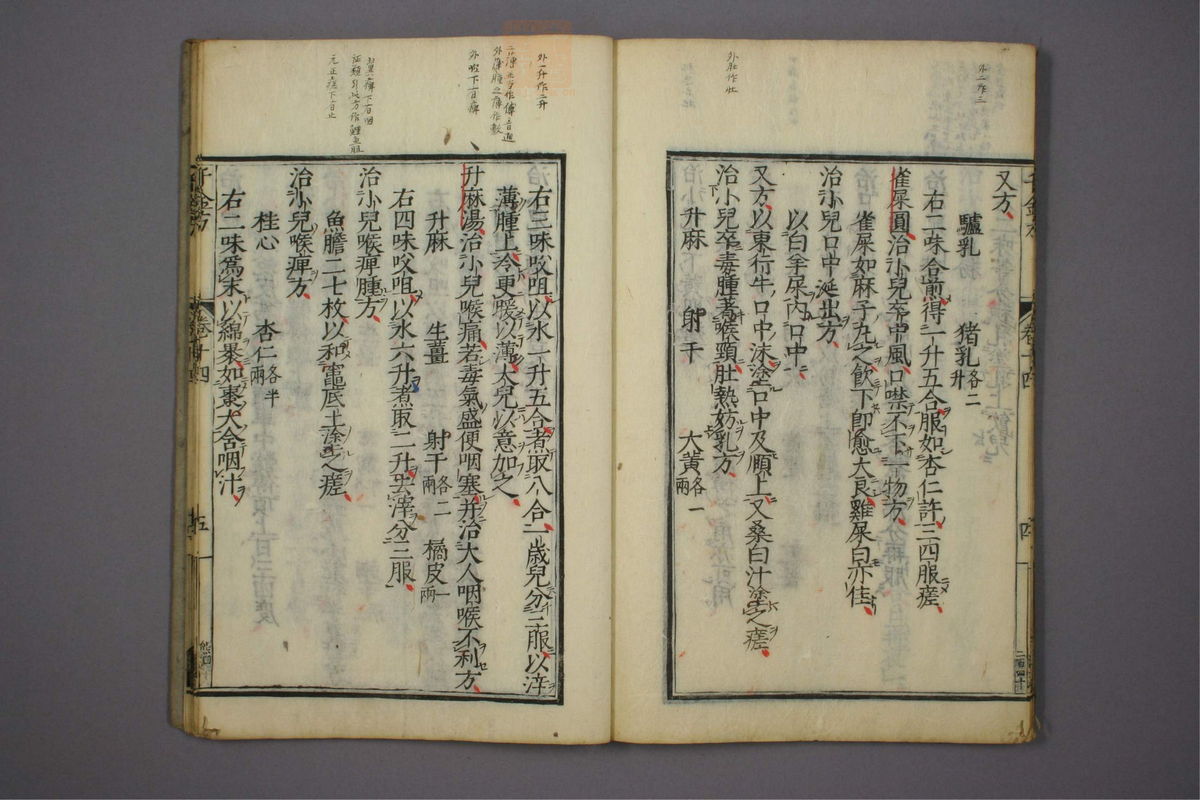 外二作三
外肚作灶
又方
驢乳　猪乳各二升
右二味合煎得一升五合服如杏仁許三四服瘥
雀屎圓治小兒卒中風口噤不下一物方
雀屎如麻子丸之飲下即愈大良雞屎白亦佳
治小兒口中涎出方
以白羊屎内口中
又方以東行牛口中沫塗口中及頤上又桑白汁塗之瘥
治小兒卒毒腫著喉頸壯熱妨乳方
升麻　射干　大黃各一兩
四
外一升作二升
外喉下有痺
右三味㕮咀以水一升五合煮取八合一歲兒分三服以滓
薄腫上冷更暖以薄大兒以意加之
升麻湯治小兒喉痛若毒氣盛便咽塞并治大人咽喉不利方
升麻　生薑　射干各二兩　橘皮一兩
右四味㕮咀以水六升煮取二升去滓分三服
治小兒喉痺腫方
魚膽二七枚以和竈底土塗之瘥
治小兒喉痺方
桂心　杏仁各半兩
右二味為末以綿裹如棗大含咽汁
千金方
卷十四
五